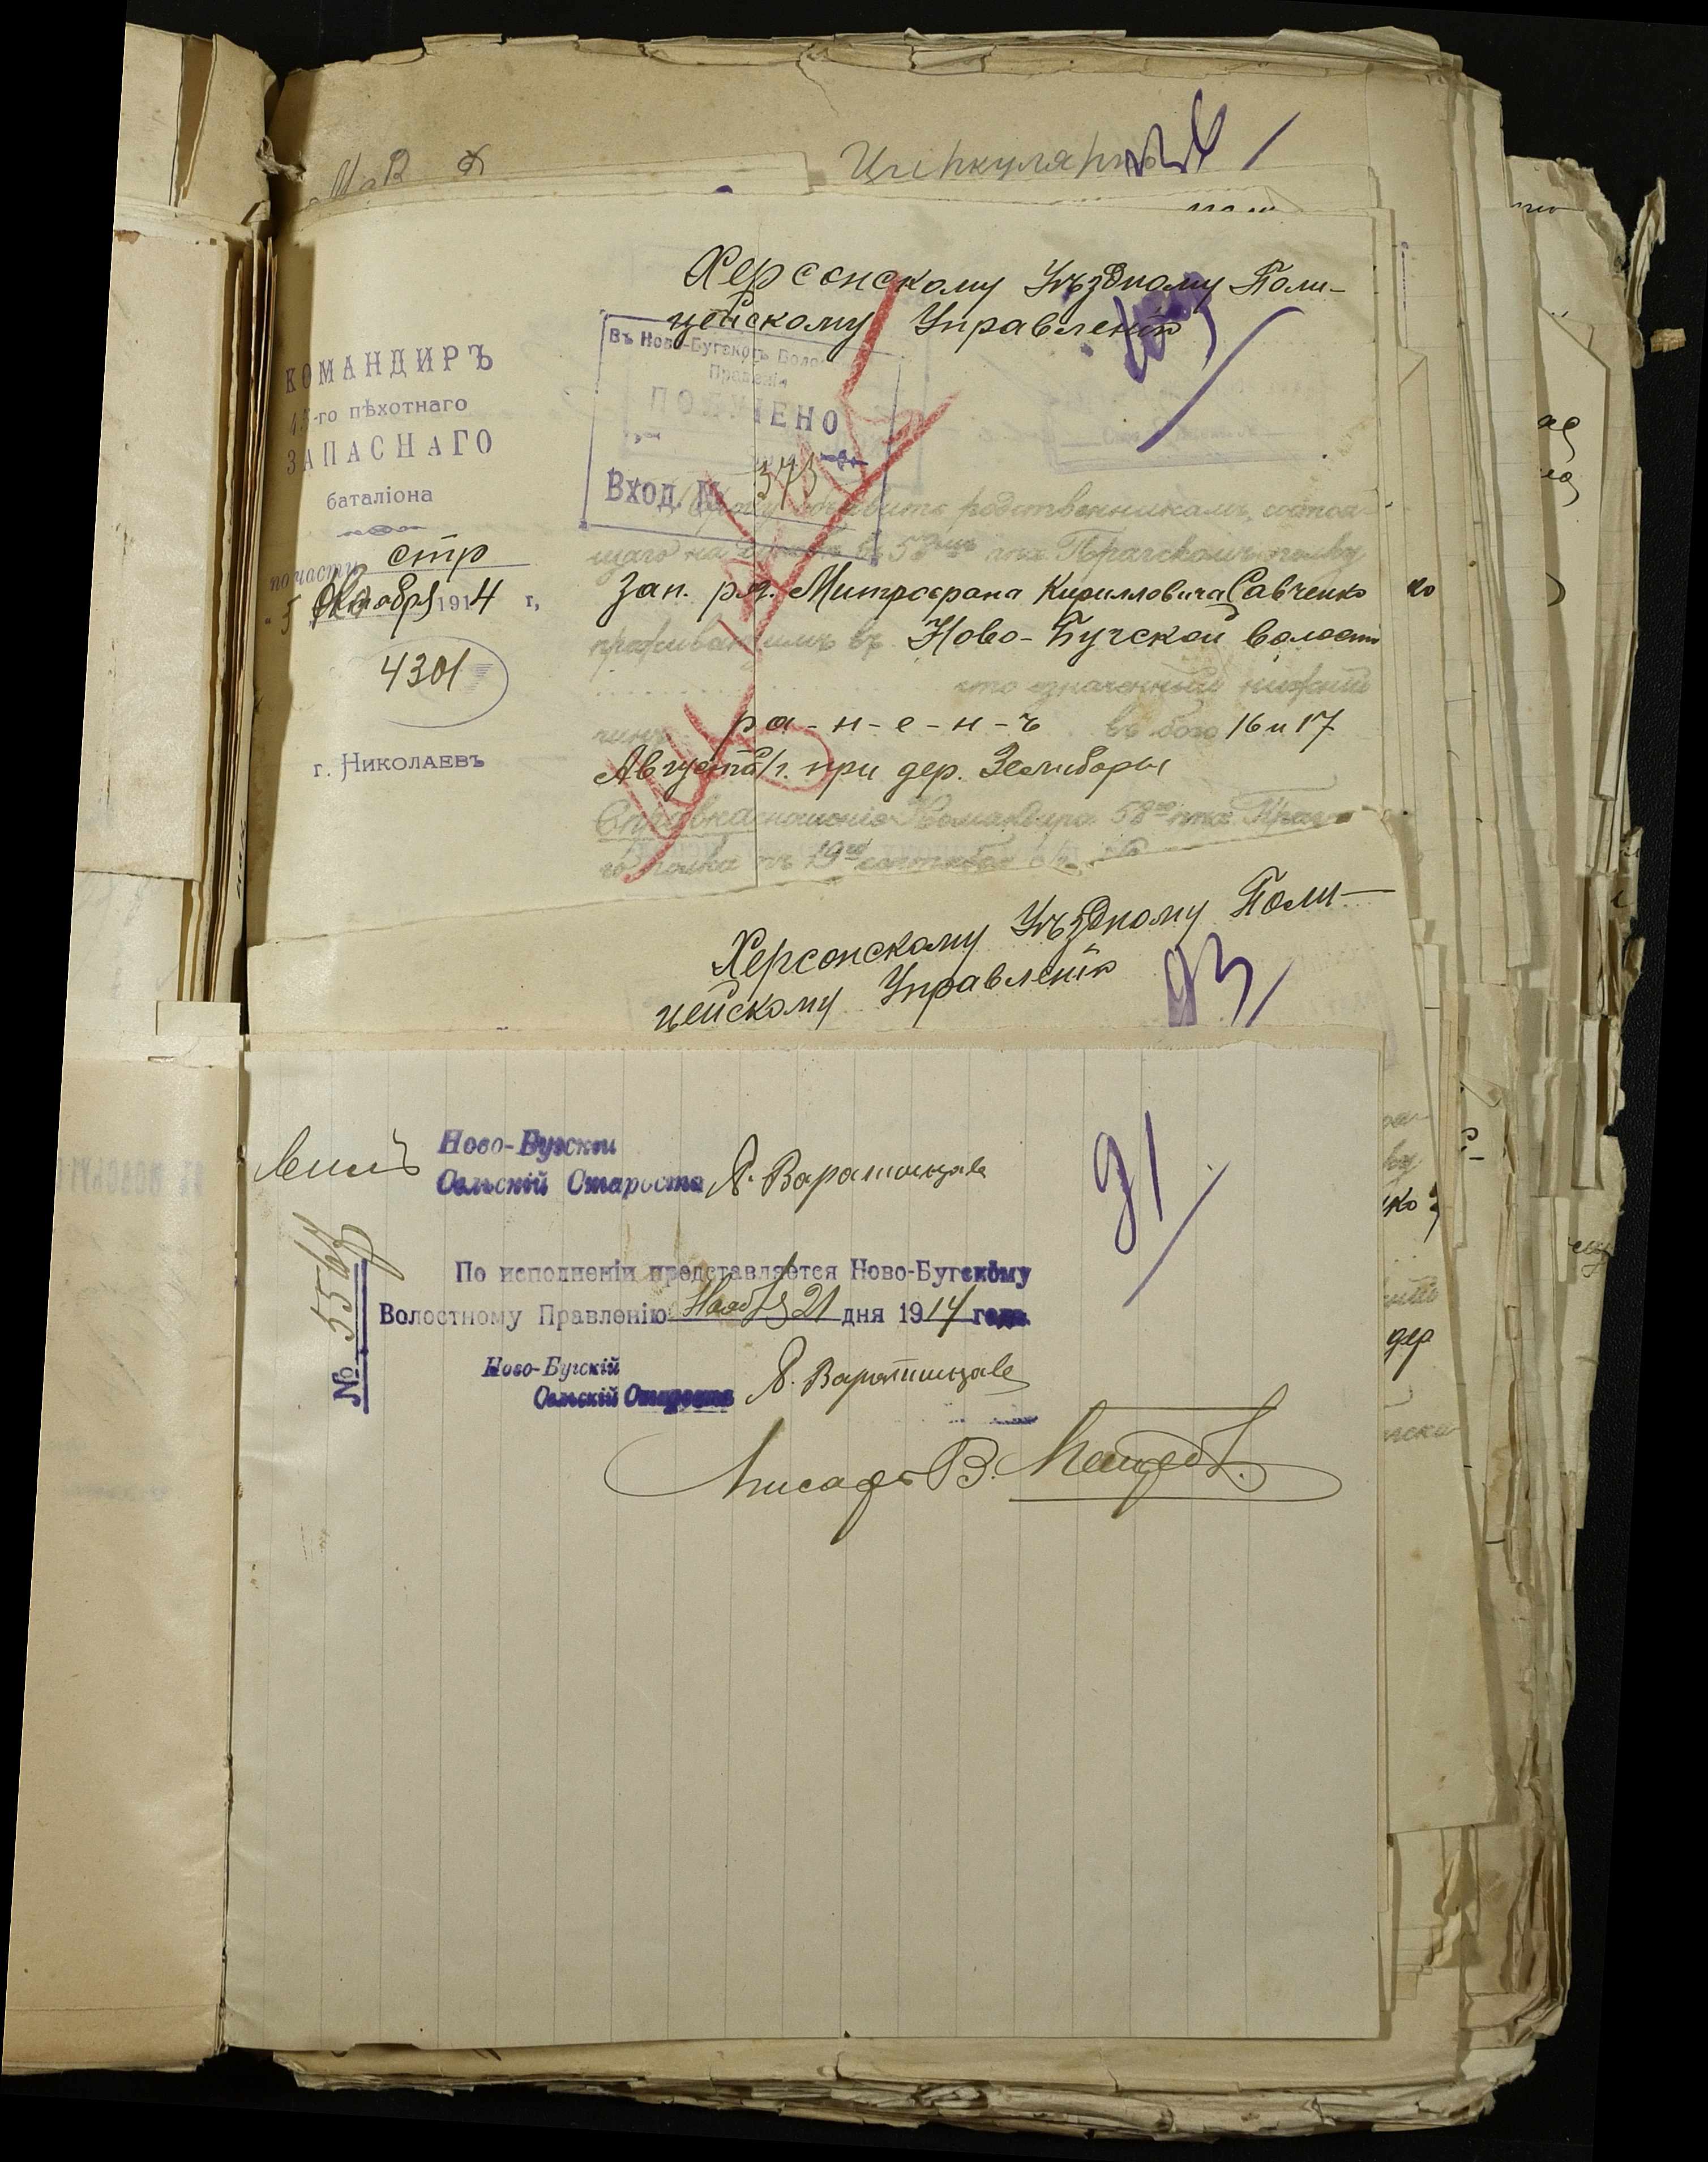 Циркулярно
Херсонскому Уѣздному Поли-
цейскому Управленію
КОМАНДИРЪ
-го пѣхотнаго
ЗАПАСНАГО
баталіона
по части стр
5 Октября 1914 г,
4301
г. НИКОЛАЕВЪ
Въ Ново-Бугскомъ Воло-
Правленіи
ПОЛУЧЕНО
Вход. № 373
Прошу объявить родственникамъ, состоя-
щаго на въ 58мъ пѣх Прагскомъ полку
Зап. ряд. Митрофана Кирилловича Савченко
проживающимъ въ Ново-Бугской волости
что означенный нижній
чинъ ра-н-е-н-ъ въ бою 16 и 17
Августа с/г. при дер.
Справка: сношеніе Командира 58го пѣх. Праг-
го полка отъ 19го сентября с/г. №
Херсонскому Уѣздному Поли-
цейскому Управленію
93
91
Ново-Бугскій
Сельскій Староста
№ 5567
По исполненіи представляется Ново-Бугскому
Волостному Правленію Ноября 21 дня 1914 года.
Ново-Бугскій
Сельскій Староста
Писарь В.